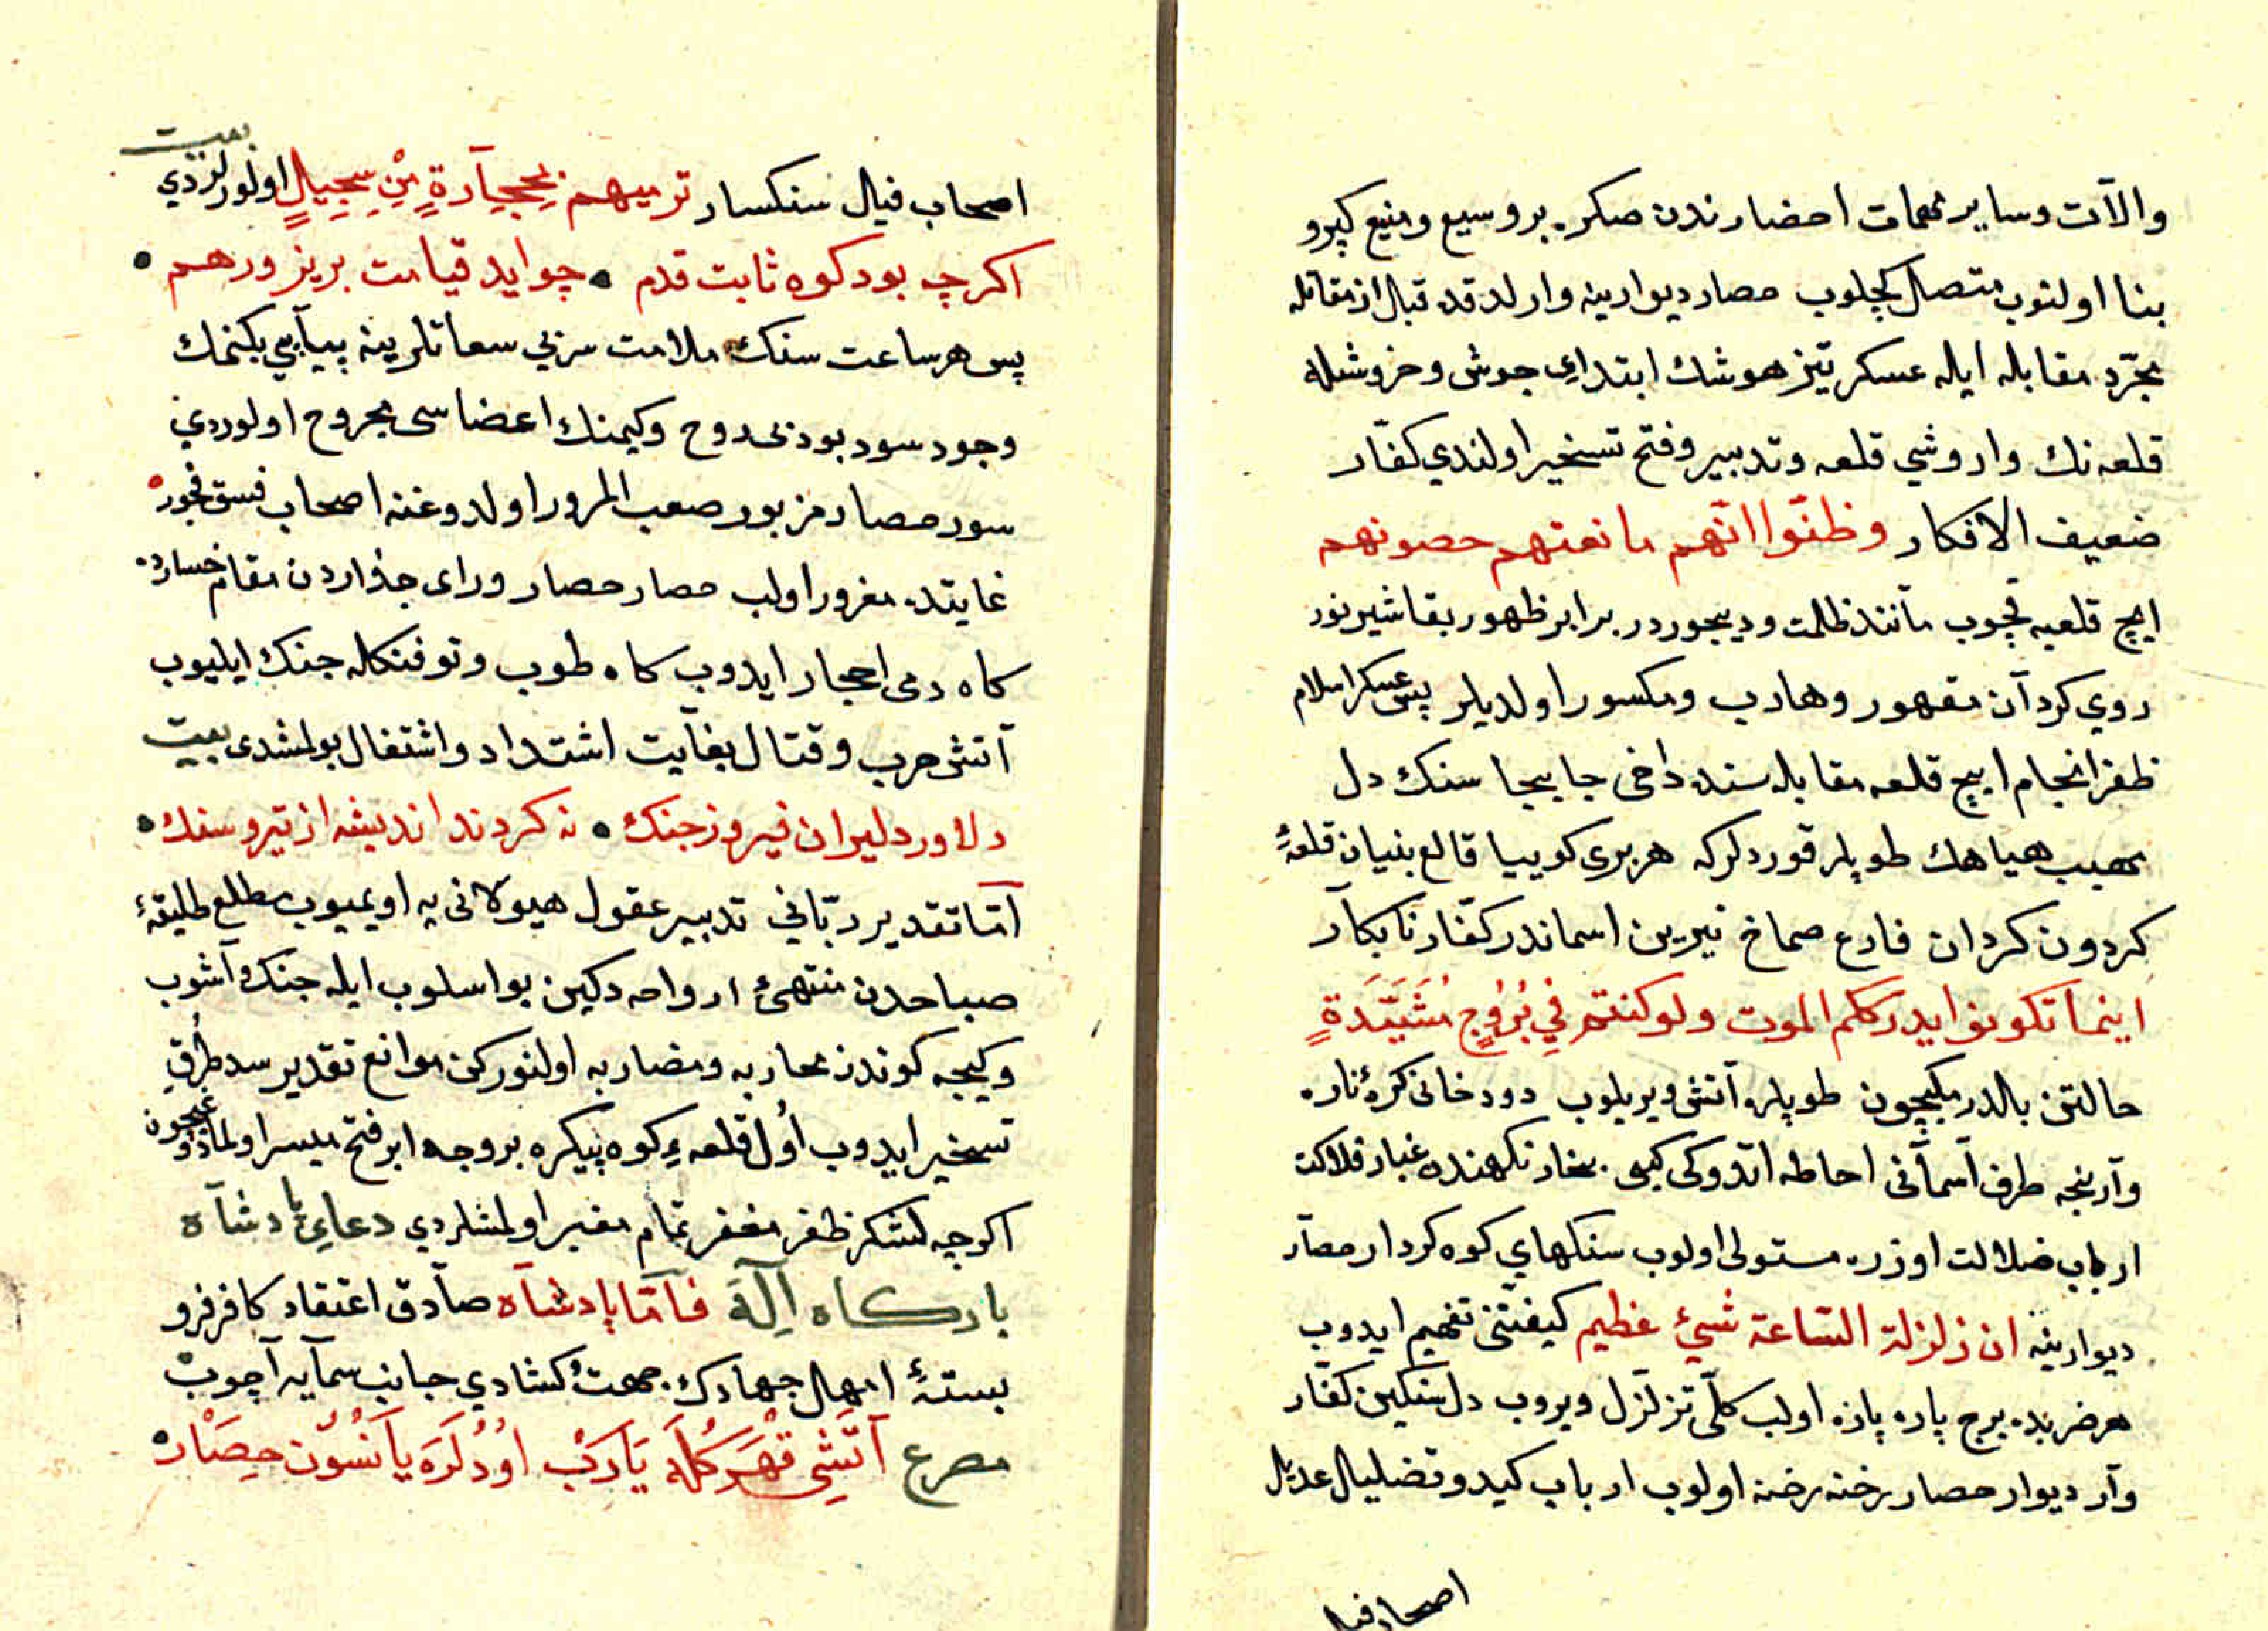 والآت وسایر مهمات احضارندن صکره بر وسیع و منیع کپرو
بنا اولنوب متصل کچلوب حصار دیوارینه وارلدقده قبل از مقاتله
مجرّد مقابله ایله عسکر تیزهوشك ابتدای جوش و خروشله
قلعه نك واروشی قلعه وتدبیر وفتح تسخیر اولندی کفّار
ضعیف الافکار وظنّوا انّهم مانعتهم حصونهم
ایچ قلعیه قچوب مانند ظلمت ودیجور در برابر ظهور بقاشیر نور
روی کردآن مقهور وهارب ومکسور اولدیلر پس عسکر اسلام
ظفر انجام ایچ قلعه مقابله سنده داخی جایجا سنك دل
مهیب هیاهك طوپلر قوردلر که هر بری کوییا قالع بنیان قلعهٔ
کردون کردان قارع صماخ نیرین اسماندر کفّار نابکآر
اینما تکونوا یدرککم الموت ولو کنتم فِي بُرُوجٍ مُشَیَّدَةٍ
حالتن بالدرمکیچون طوپلره آتش ویریلوب دود خانی کرهٔ ناره
وآرنجه طرف آسمآنی احاطه اتدوکی کبی بخار نکهنده غبار فلاکت
ارباب ضلالت اوزره مستولی اولوب سنکهای کوه کردار حصآر
دیوارینه ان زلزلة السّاعة شیئ عظیم کیفیّتنی تفهیم ایدوب
هر ضربده برج پاره پاره اولب کلّی تزلزل ویروب دل سنکین کفّار
وآر دیوار حصار رخنه رخنه اولوب ارباب کید وتضلیل عدیل
اصحاب فیل
اصحاب فیل سنکسار ترمیهم بِحِجَآرَةٍ مِنْ سِجِیلٍ اولورلردی بیت
اکرچه بود کوه ثابت قدم • چو اید قیامت بریزد رهم •
پس هر ساعت سنك ملامت سزلی سعاتلرینه پیآپی یکنمك
وجود سود بود بی روح وکیمنك اعضاسی مجروح اولوردی
سور حصار مزبور صعب المرور اولدوغنه اصحاب فسق فجور
غایتده مغرور اولب حصار حصار ورای جداردن مقام خسارده
کاه رمی احجار ایدوب کاه طوب وتوفنکله جنك ایلیوب
آتش حرب وقتال بغآیت اشتداد واشتغال بولمشدی بیت
دلاور دلیران فیروز جنك • نه کردند اندیشه از تیر و سنك •
امّا تقدیر ربّانی تدبیر عقول هیولانی یه اویمیوب مطلع طلیقهٔ
صباحدن منتهئ ارواحه دکین بو اسلوب ایله جنك وآشوب
وکیجه کوندن محاربه ومضاربه اولنورکن موانع تقدیر سد طُرُقِ
تسخیر ایدوب اوُل قلعهءِ کوه پیکره بر وجه ابر فتح میسر اولمادوغیچون
اکرچه لشکر ظفر مغفر تمام مغبر اولمشلردی دعایِ پادشآه
بارکاه اِلٓه فآمّا پادشآه صآدق اعتقاد کافر فرو
بستهٔ امهال جهادك جهت کشادی جانب سمآیه آچوب
مصرع آتَشِی قَهْرِکُلَه یَارَب اوُدْلَرَه یَآنْسُون حِصَارْ